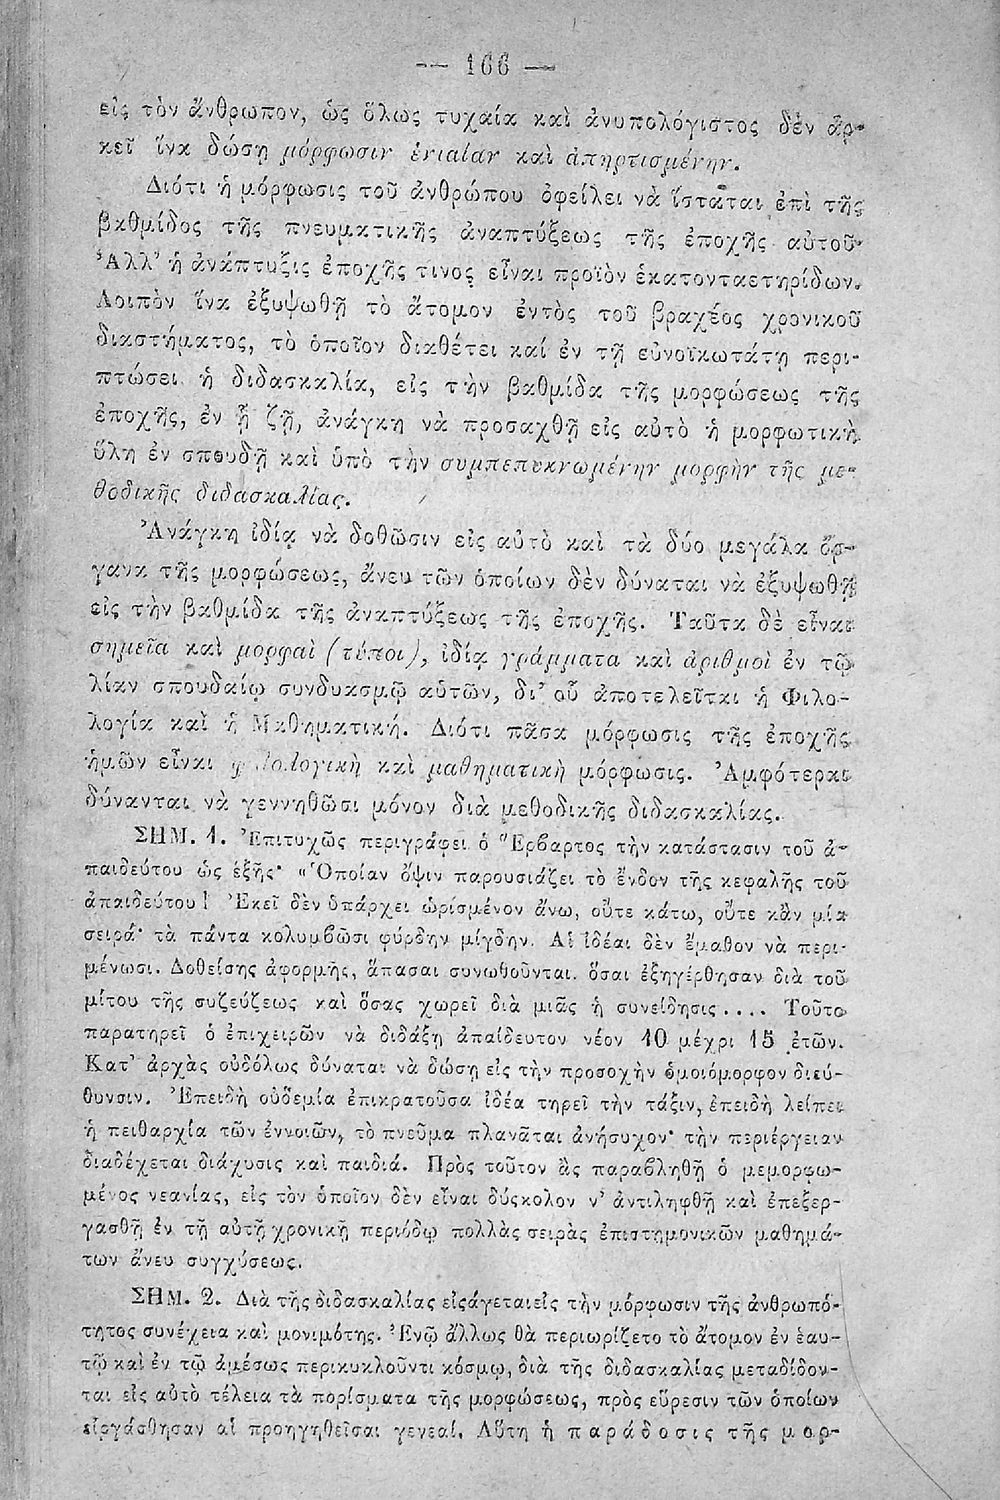 — 166 —
εἰς τὸν ἄνθρωπον, ὡς ὅλως τυχαία καὶ ἀνυπολόγιστος δὲν ἀρ-
κεῖ ἵνα δώσῃ μόρφωσιν ἑνιαίαν καὶ ἀπηρτισμένην.
Διότι ἡ μόρφωσις τοῦ ἀνθρώπου ὀφείλει νὰ ἵσταται ἐπὶ τῆς
βαθμίδος τῆς πνευματικῆς ἀναπτύξεως τῆς ἐποχῆς αὐτοῦ·
Ἀλλ’ ἡ ἀνάπτυξις ἐποχῆς τινος εἶναι προϊὸν ἑκατονταετηρίδων.
Λοιπὸν ἵνα ἐξυψωθῇ τὸ ἄτομον ἐντὸς τοῦ βραχέος χρονικοῦ
διαστήματος, τὸ ὁποῖον διαθέτει καί ἐν τῇ εὐνοϊκωτάτῃ περι-
πτώσει ἡ διδασκαλία, εἰς τὴν βαθμίδα τῆς μορφώσεως τῆς
ἐποχῆς, ἐν ᾗ ζῇ, ἀνάγκη νὰ προσαχθῇ εἰς αὐτὸ ἡ μορφωτικὴ
ὕλη ἐν σπουδῇ καὶ ὑπὸ τὴν συμπεπυκνωμένην μορφὴν τῆς με-
θοδικῆς διδασκαλίας.
Ἀνάγκη ἰδίᾳ νὰ δοθῶσιν εἰς αὐτὸ καὶ τὰ δύο μεγάλα ὄρ-
γανα τῆς μορφώσεως, ἄνευ τῶν ὁποίων δὲν δύναται νὰ ἐξυψωθῇ
εἰς τὴν βαθμίδα τῆς ἀναπτύξεως τῆς ἐποχῆς. Ταῦτα δὲ εἶναι
σημεῖα καὶ μορφαὶ (τύποι), ἰδίᾳ γράμματα καὶ ἀριθμοὶ ἐν τῷ
λίαν σπουδαίῳ συνδυασμῷ αὑτῶν, δι’ οὗ ἀποτελεῖται ἡ Φιλο-
λογία καὶ ἡ Μαθηματική. Διότι πᾶσα μόρφωσις τῆς ἐποχῆς
ἡμῶν εἶναι φιλολογικὴ καὶ μαθηματικὴ μόρφωσις. Ἀμφότεραι
δύνανται νὰ γεννηθῶσι μόνον διὰ μεθοδικῆς διδασκαλίας.
ΣΗΜ. 1. Ἐπιτυχῶς περιγράφει ὁ Ἕρβαρτος τὴν κατάστασιν τοῦ ἀ-
παιδεύτου ὡς ἑξῆς· «Ὁποίαν ὄψιν παρουσιάζει τὸ ἔνδον τῆς κεφαλῆς τοῦ
ἀπαιδεύτου! Ἐκεῖ δὲν ὑπάρχει ὡρίσμένον ἄνω, οὔτε κάτω, οὔτε κἂν μία
σειρά· τὰ πάντα κολυμβῶσι φύρδην μίγδην. Αἱ ἰδέαι δὲν ἔμαθον νὰ περι-
μένωσι. Δοθείσης ἀφορμῆς, ἅπασαι συνωθοῦνται. ὅσαι ἐξηγέρθησαν διὰ τοῦ
μίτου τῆς συζεύξεως καὶ ὅσας χωρεῖ διὰ μιᾶς ἡ συνείδησις.... Τοῦτο
παρατηρεῖ ὁ ἐπιχειρῶν νὰ διδάξῃ ἀπαίδευτον νέον 10 μέχρι 15 ἐτῶν.
Κατ’ ἀρχὰς οὐδόλως δύναται νὰ δώσῃ εἰς τὴν προσοχὴν ὁμοιόμορφον διεύ-
θυνσιν. Ἐπειδὴ οὐδεμία ἐπικρατοῦσα ἰδέα τηρεῖ τὴν τάξιν, ἐπειδὴ λείπει
ἡ πειθαρχία τῶν ἐννοιῶν, τὸ πνεῦμα πλανᾶται ἀνήσυχον· τὴν περιέργειαν
διαδέχεται διάχυσις καὶ παιδιά. Πρὸς τοῦτον ἂς παραβληθῇ ὁ μεμορφω-
μένος νεανίας, εἰς τὸν ὁποῖον δὲν εἶναι δύσκολον ν’ ἀντιληφθῇ καὶ ἐπεξερ-
γασθῇ ἐν τῇ αὐτῇ χρονικῇ περιόδῳ πολλὰς σειρὰς ἐπιστημονικῶν μαθημά-
των ἄνευ συγχύσεως.
ΣΗΜ. 2. Διὰ τῆς διδασκαλίας εἰσάγεται εἰς τὴν μόρφωσιν τῆς ἀνθρωπό-
τητος συνέχεια καὶ μονιμότης. Ἐνῷ ἄλλως θὰ περιωρίζετο τὸ ἄτομον ἐν ἑαυ-
τῷ καὶ ἐν τῷ ἀμέσως περικυκλοῦντι κόσμῳ, διὰ τῆς διδασκαλίας μεταδίδον-
ται εἰς αὐτὸ τέλεια τὰ πορίσματα τῆς μορφώσεως, πρὸς εὕρεσιν τῶν ὁποίων
εἰργάσθησαν αἱ προηγηθεῖσαι γενεαί. Αὕτη ἡ παράδοσις τῆς μορ-